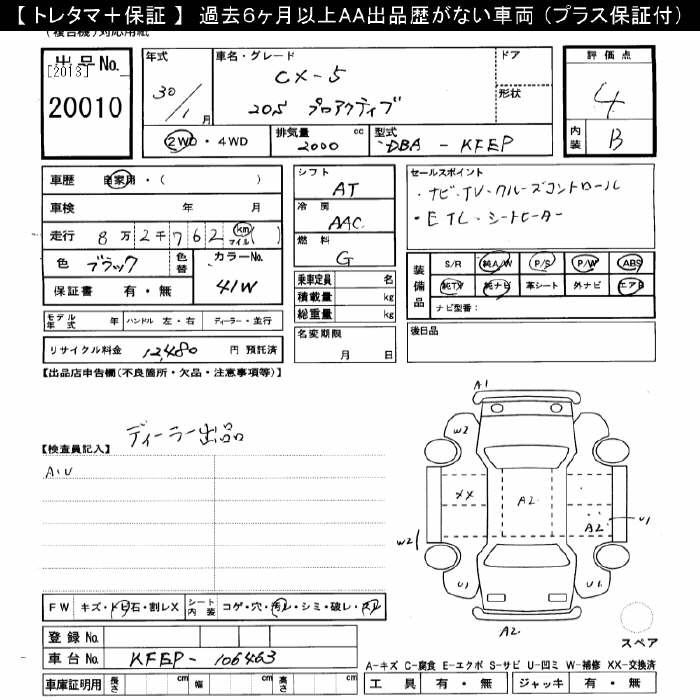 【 トレタマ＋保証 】 過去６ヶ月以上AA出品歴がない車両（プラス保証付）
(複合機)対応用紙
出品No.
[2013]
20010
年式
30/1月
車名・グレード
CX-5
20S プロアクティブ
ドア
形状
評価点
4
内装 B
2WD・4WD
排気量 2000 cc
型式 DBA - KFEP
車歴 自家用・( )
車検 年 月
走行 8万2千762 (km マイル)( )
色 ブラック 色替 カラーNo. 41W
保証書 有・無
モデル年式 年 ハンドル 左・右 ディーラー・並行
リサイクル料金 12,480 円 預託済
シフト
AT
冷房
AAC
燃料
G
乗車定員 名
積載量 kg
総重量 kg
名変期限
月 日
セールスポイント
・ナビ・TV・クルーズコントロール
・ETC・シートヒーター
装備品
S/R 純A/W P/S P/W ABS
純TV 純ナビ 革シート 外ナビ エアB
ナビ型番：
後日品
【出品店申告欄(不良箇所・欠品・注意事項等)】
ディーラー出品
【検査員記入】
A・U
A1
W2
XX
A2
A2
U1
W2
U1
U1
A2
スペア
FW キズ・トビ石・割レX シート内装 コゲ・穴・汚レ・シミ・破レ・スレ
登録 No.
車台 No. KFEP-106463
車庫証明用 長さ cm 幅 cm 高さ cm
A-キズ C-腐食 E-エクボ S-サビ U-凹ミ W-補修 XX-交換済
工具 有・無 ジャッキ 有・無